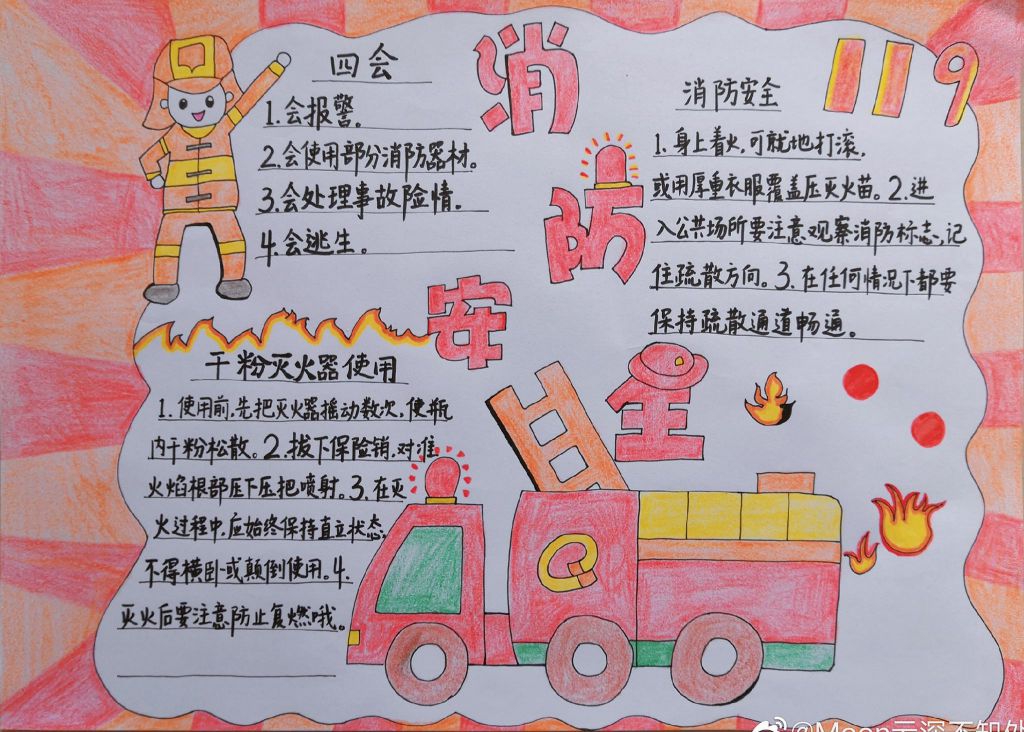 消防安全
119
四会
1.会报警。
2.会使用部分消防器材。
3.会处理事故险情。
4.会逃生。
消防安全
1.身上着火,可就地打滚,
或用厚重衣服覆盖压灭火苗。2.进
入公共场所要注意观察消防标志,记
住疏散方向。3.在任何情况下都要
保持疏散通道畅通。
干粉灭火器使用
1.使用前,先把灭火器摇动数次,使瓶
内干粉松散。2.拔下保险销,对准
火焰根部压下压把喷射。3.在灭
火过程中,应始终保持直立状态,
不得横卧或颠倒使用。4.
灭火后要注意防止复燃哦。
@Moon云深不知处